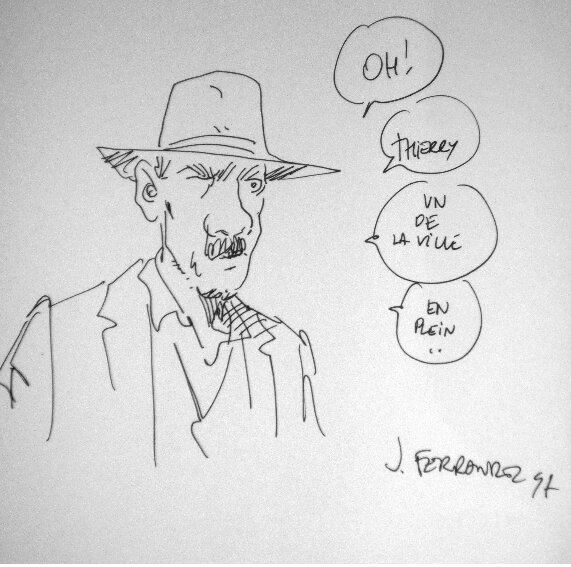 OH!
THIERRY
UN
DE
LA VILLE
EN
PLEIN
..
J. FERRANDEZ 97